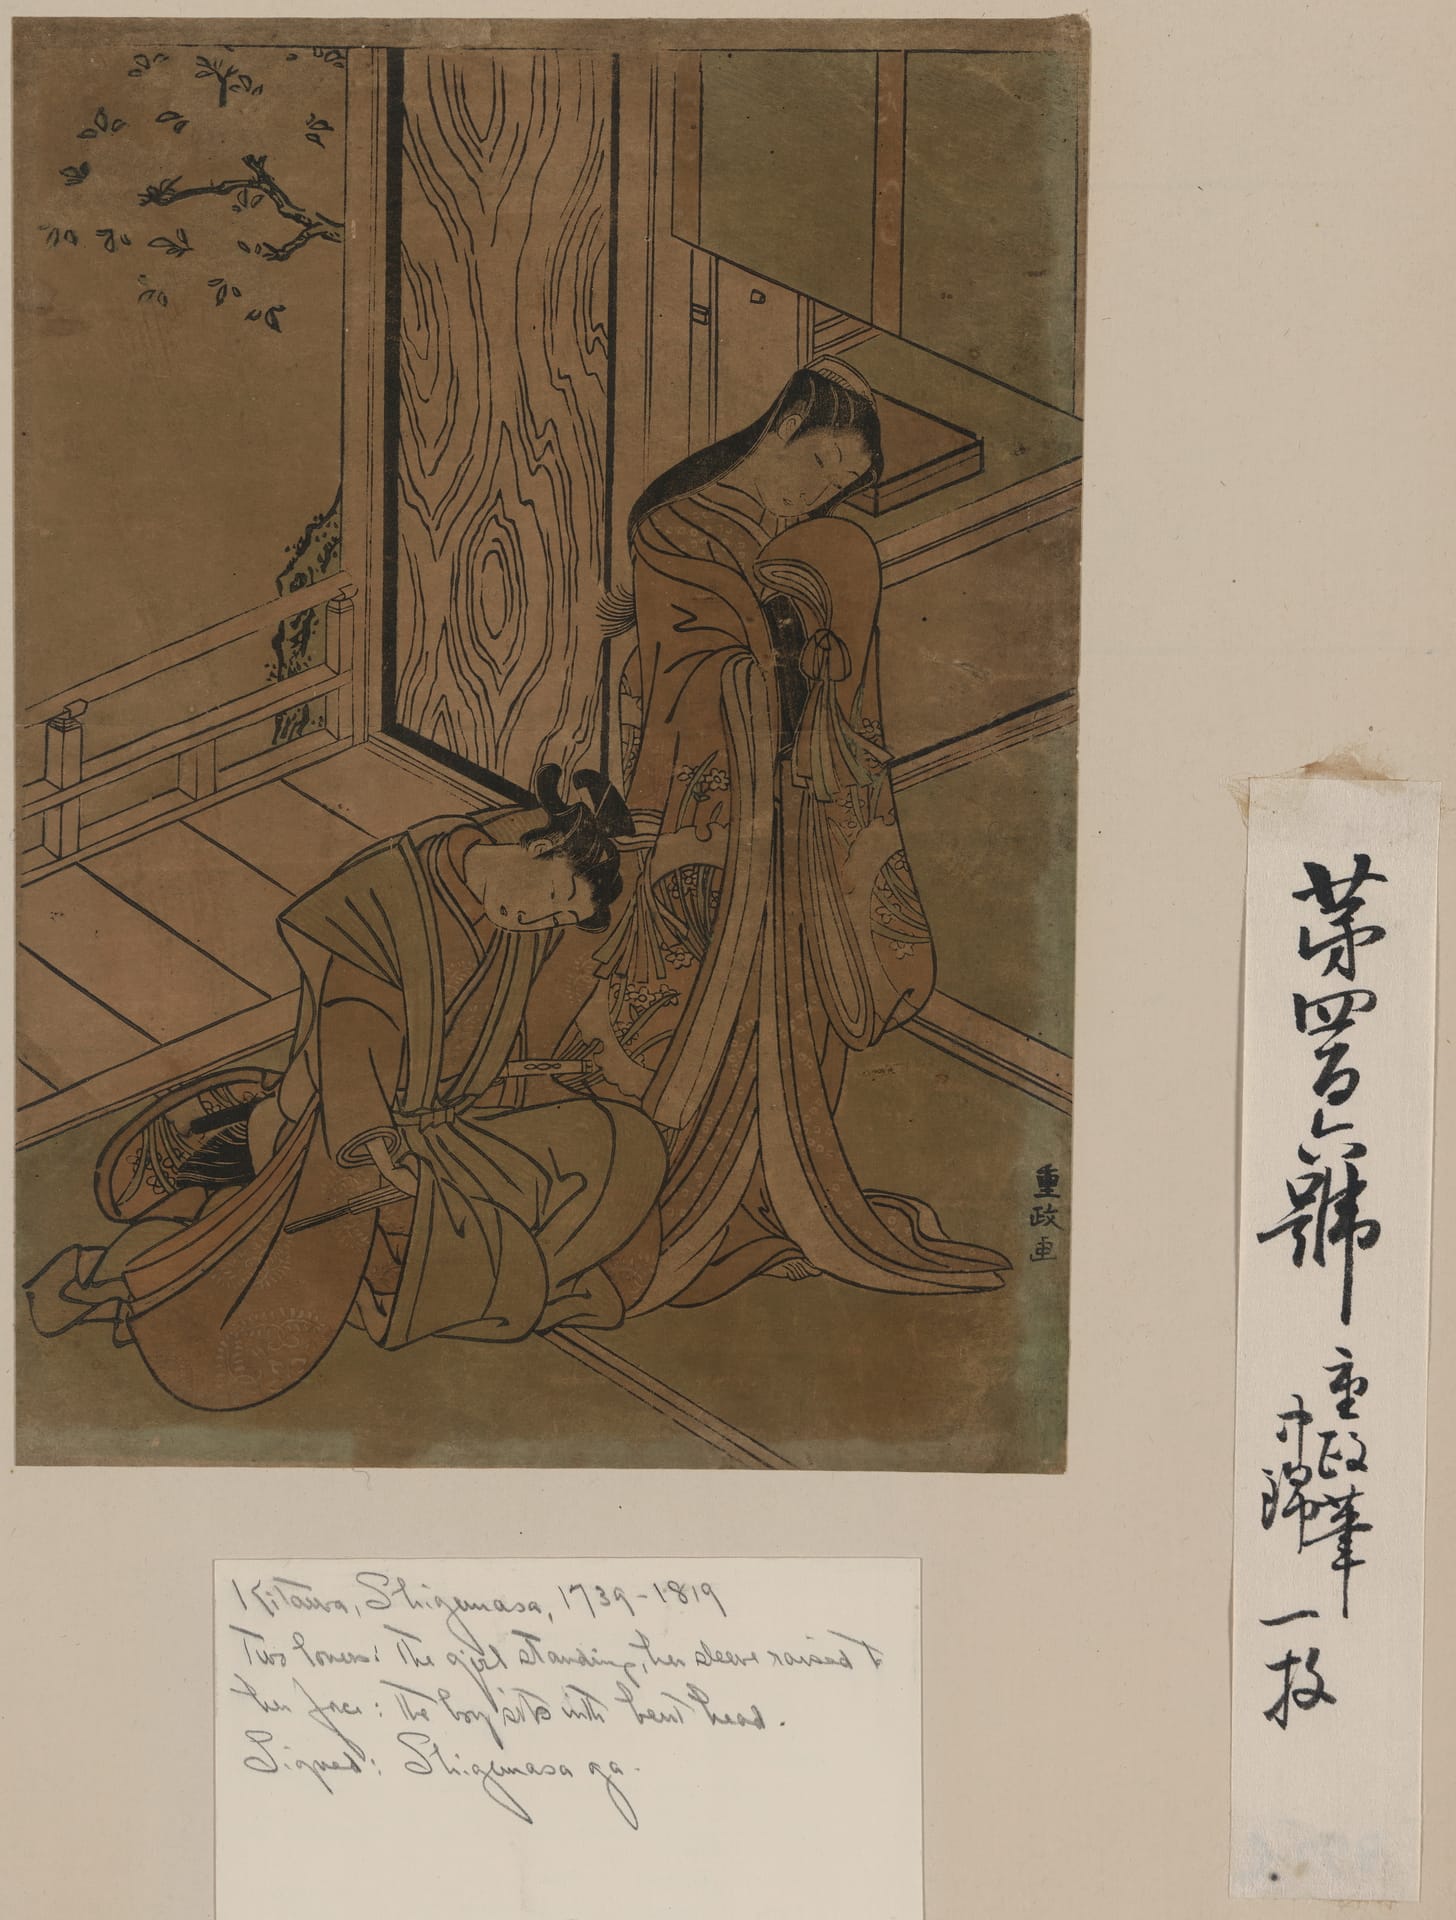 重政画
第四百六號
重政筆
中錦
一枚
Kitawa, Shigemasa, 1739-1819
Two lovers: The girl standing, her sleeve raised to
her face: the boy sits with bent head.
Signed: Shigemasa ga.